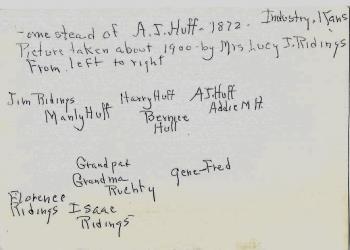 -ome stead of A.J. Huff - 1872. Industry, Kans
Picture taken about 1900 - by Mrs Lucy J. Ridings
From left to right
Jim Ridings Harry Huff AJ. Huff
Manly Huff Bernice Huff Addie M H.
Grandpat
Grandma gene-Fred
Ruchty
Florence Ridings Isaac Ridings